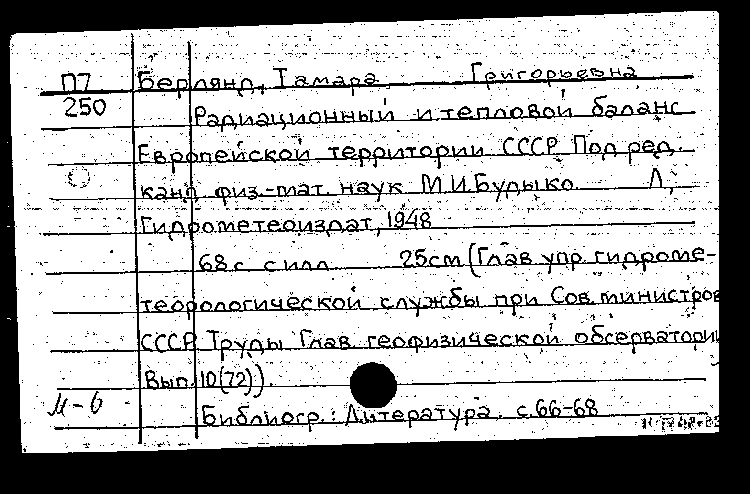 П7 Берлянд, Тамара Григорьевна
250 Радиационный и тепловой баланс
Европейской территории СССР. Под ред.
канд. физ.-мат. наук М.И.Будыко. Л.,
Гидрометеоиздат, 1948
68 с. с илл. 25см (Глав. упр. гидроме-
теорологической службы при Сов. министров
СССР. Труды Глав. геофизической обсерватории
Вып. 10(72)).
М-6
Библиогр.: Литература. с.66-68